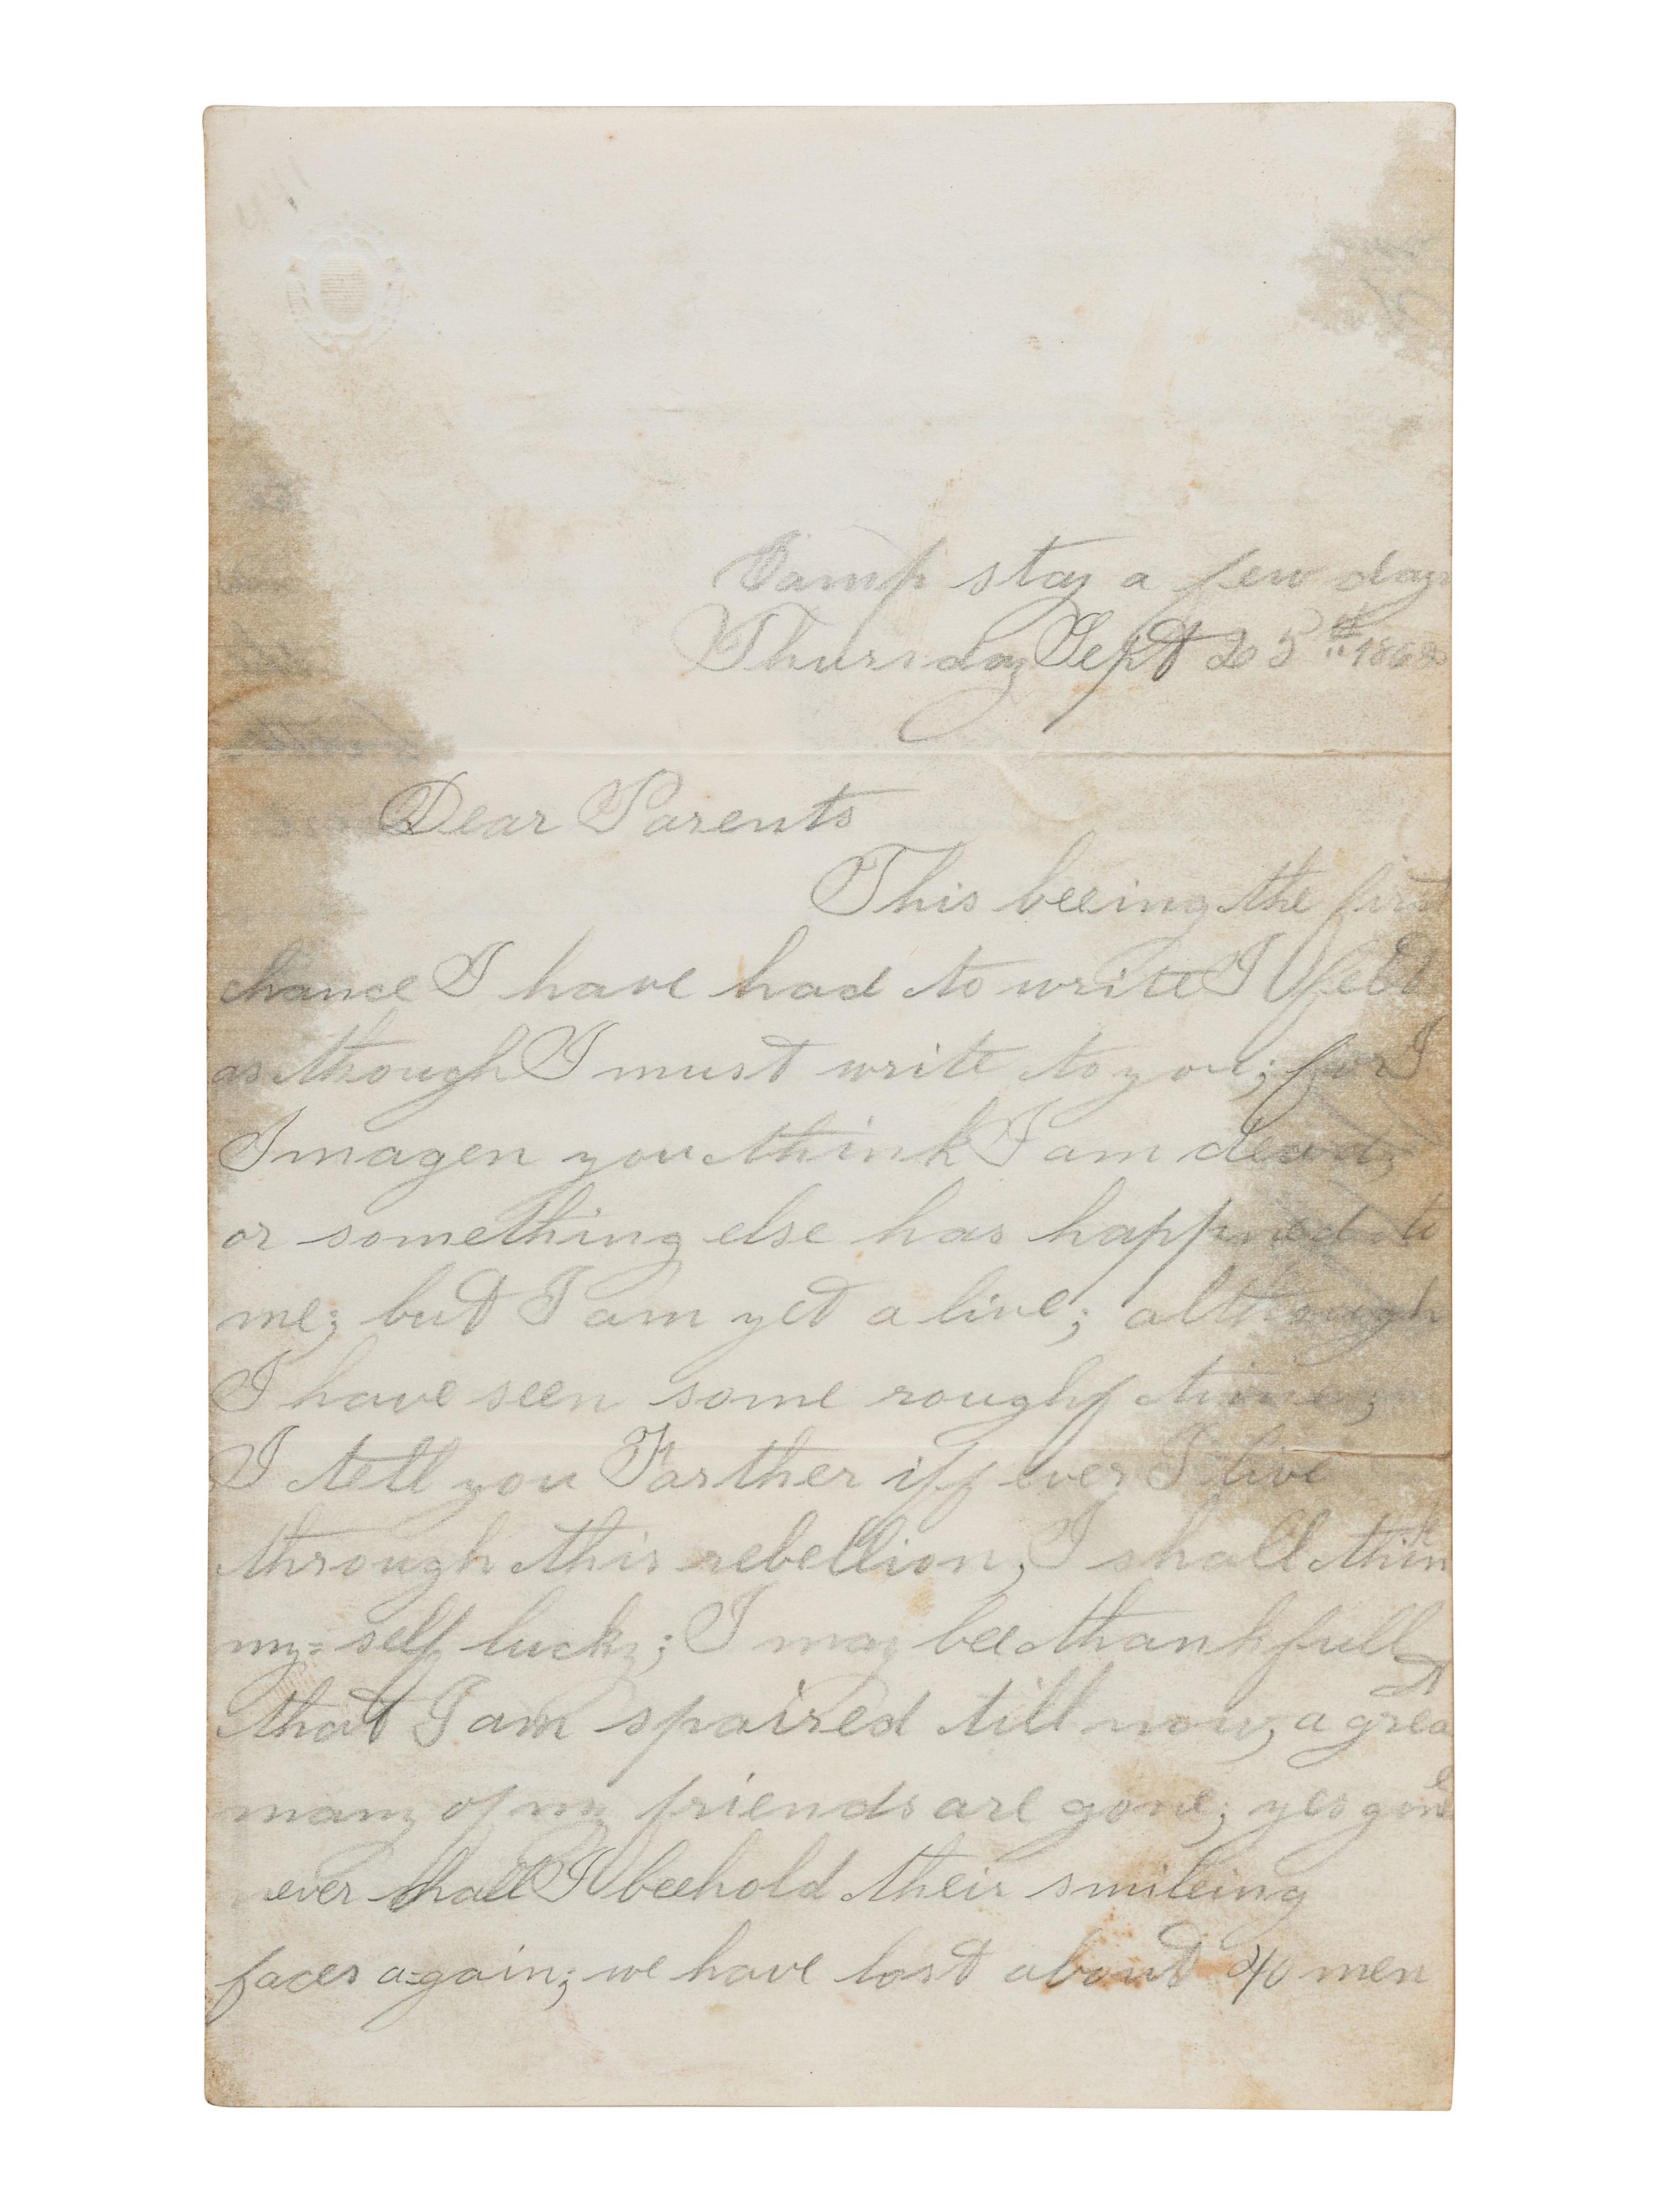 Camp stay a few days
Thursday Sept 25th 1862
Dear Parents
This beeing the first
chance I have had to write I feel
as though I must write to you; for I
Imagen you think I am dead,
or something else has happned to
me; but I am yet a live; although
I have seen some rough times;
I tell you Farther iff ever I live
through this rebellion, I shall think
my=self lucky; I may bee thankfull
that I am spaired till now, a great
many of my friends are gone; yes gone
ever shall I beehold their smileing
faces a=gain; we have lost about 40 men